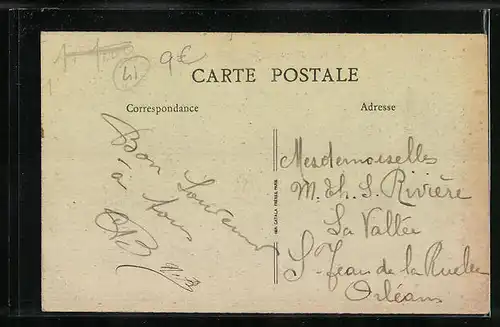 41
9€
CARTE POSTALE
Correspondance
Adresse
Bon Souvenir
à tous
Mesdemoiselles
M. Th. S. Rivière
La Vallée
St Jean de la Ruelle
Orléans
IMP. CATALA FRÈRES, PARIS